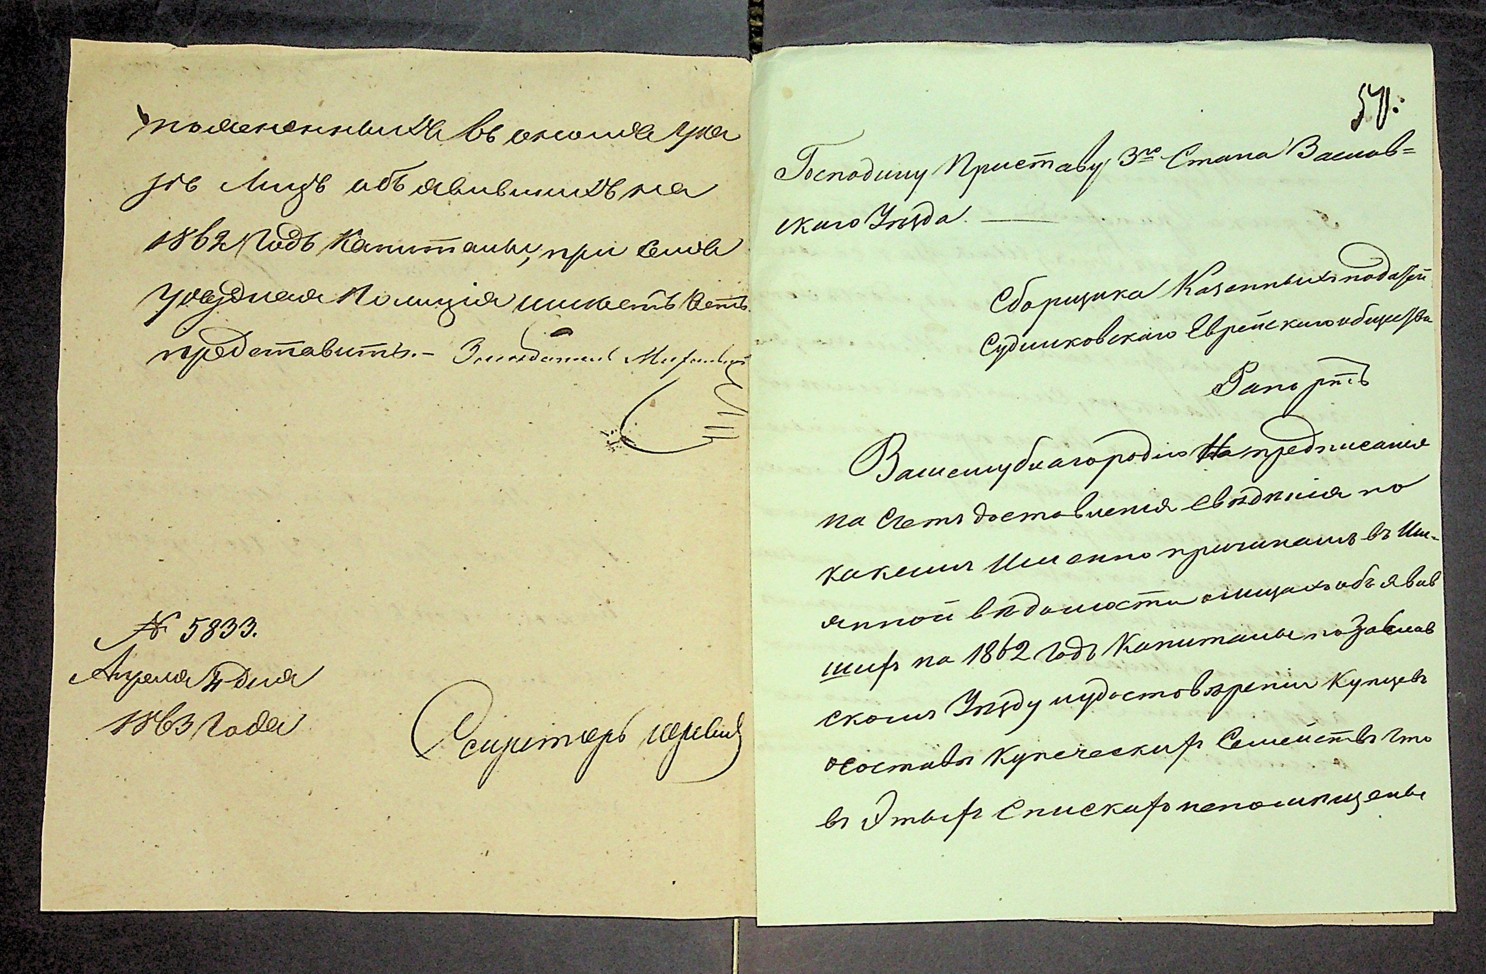 помененныхъ въ ономъ ука
зѣ лицъ объявившихъ на
1862 годъ Капиталы, при семъ
уѣздная Полиція имѣетъ честь
представить.–
№ 5833.
Апреля 4 дня
1863 года
Секретарь
50.
Господину Приставу 3го Стана Заслав=
скаго Уѣзда.
Сборщика Казенныхъ податей
Судилковскаго Еврейскаго общества
Рапортъ
Вашему благородію На предписаніе
на счетъ доставленія Свѣдѣнія по
какимъ Именно причинамъ въ Им-
янной вѣдомости олицахъ объявив
шихъ на 1862 годъ Капиталы по Заслав
скому Уѣзду иудостовѣреніи Купцевъ
осоставѣ Купеческихъ Семействъ что
въ Этыхъ Спискахъ непомѣщены